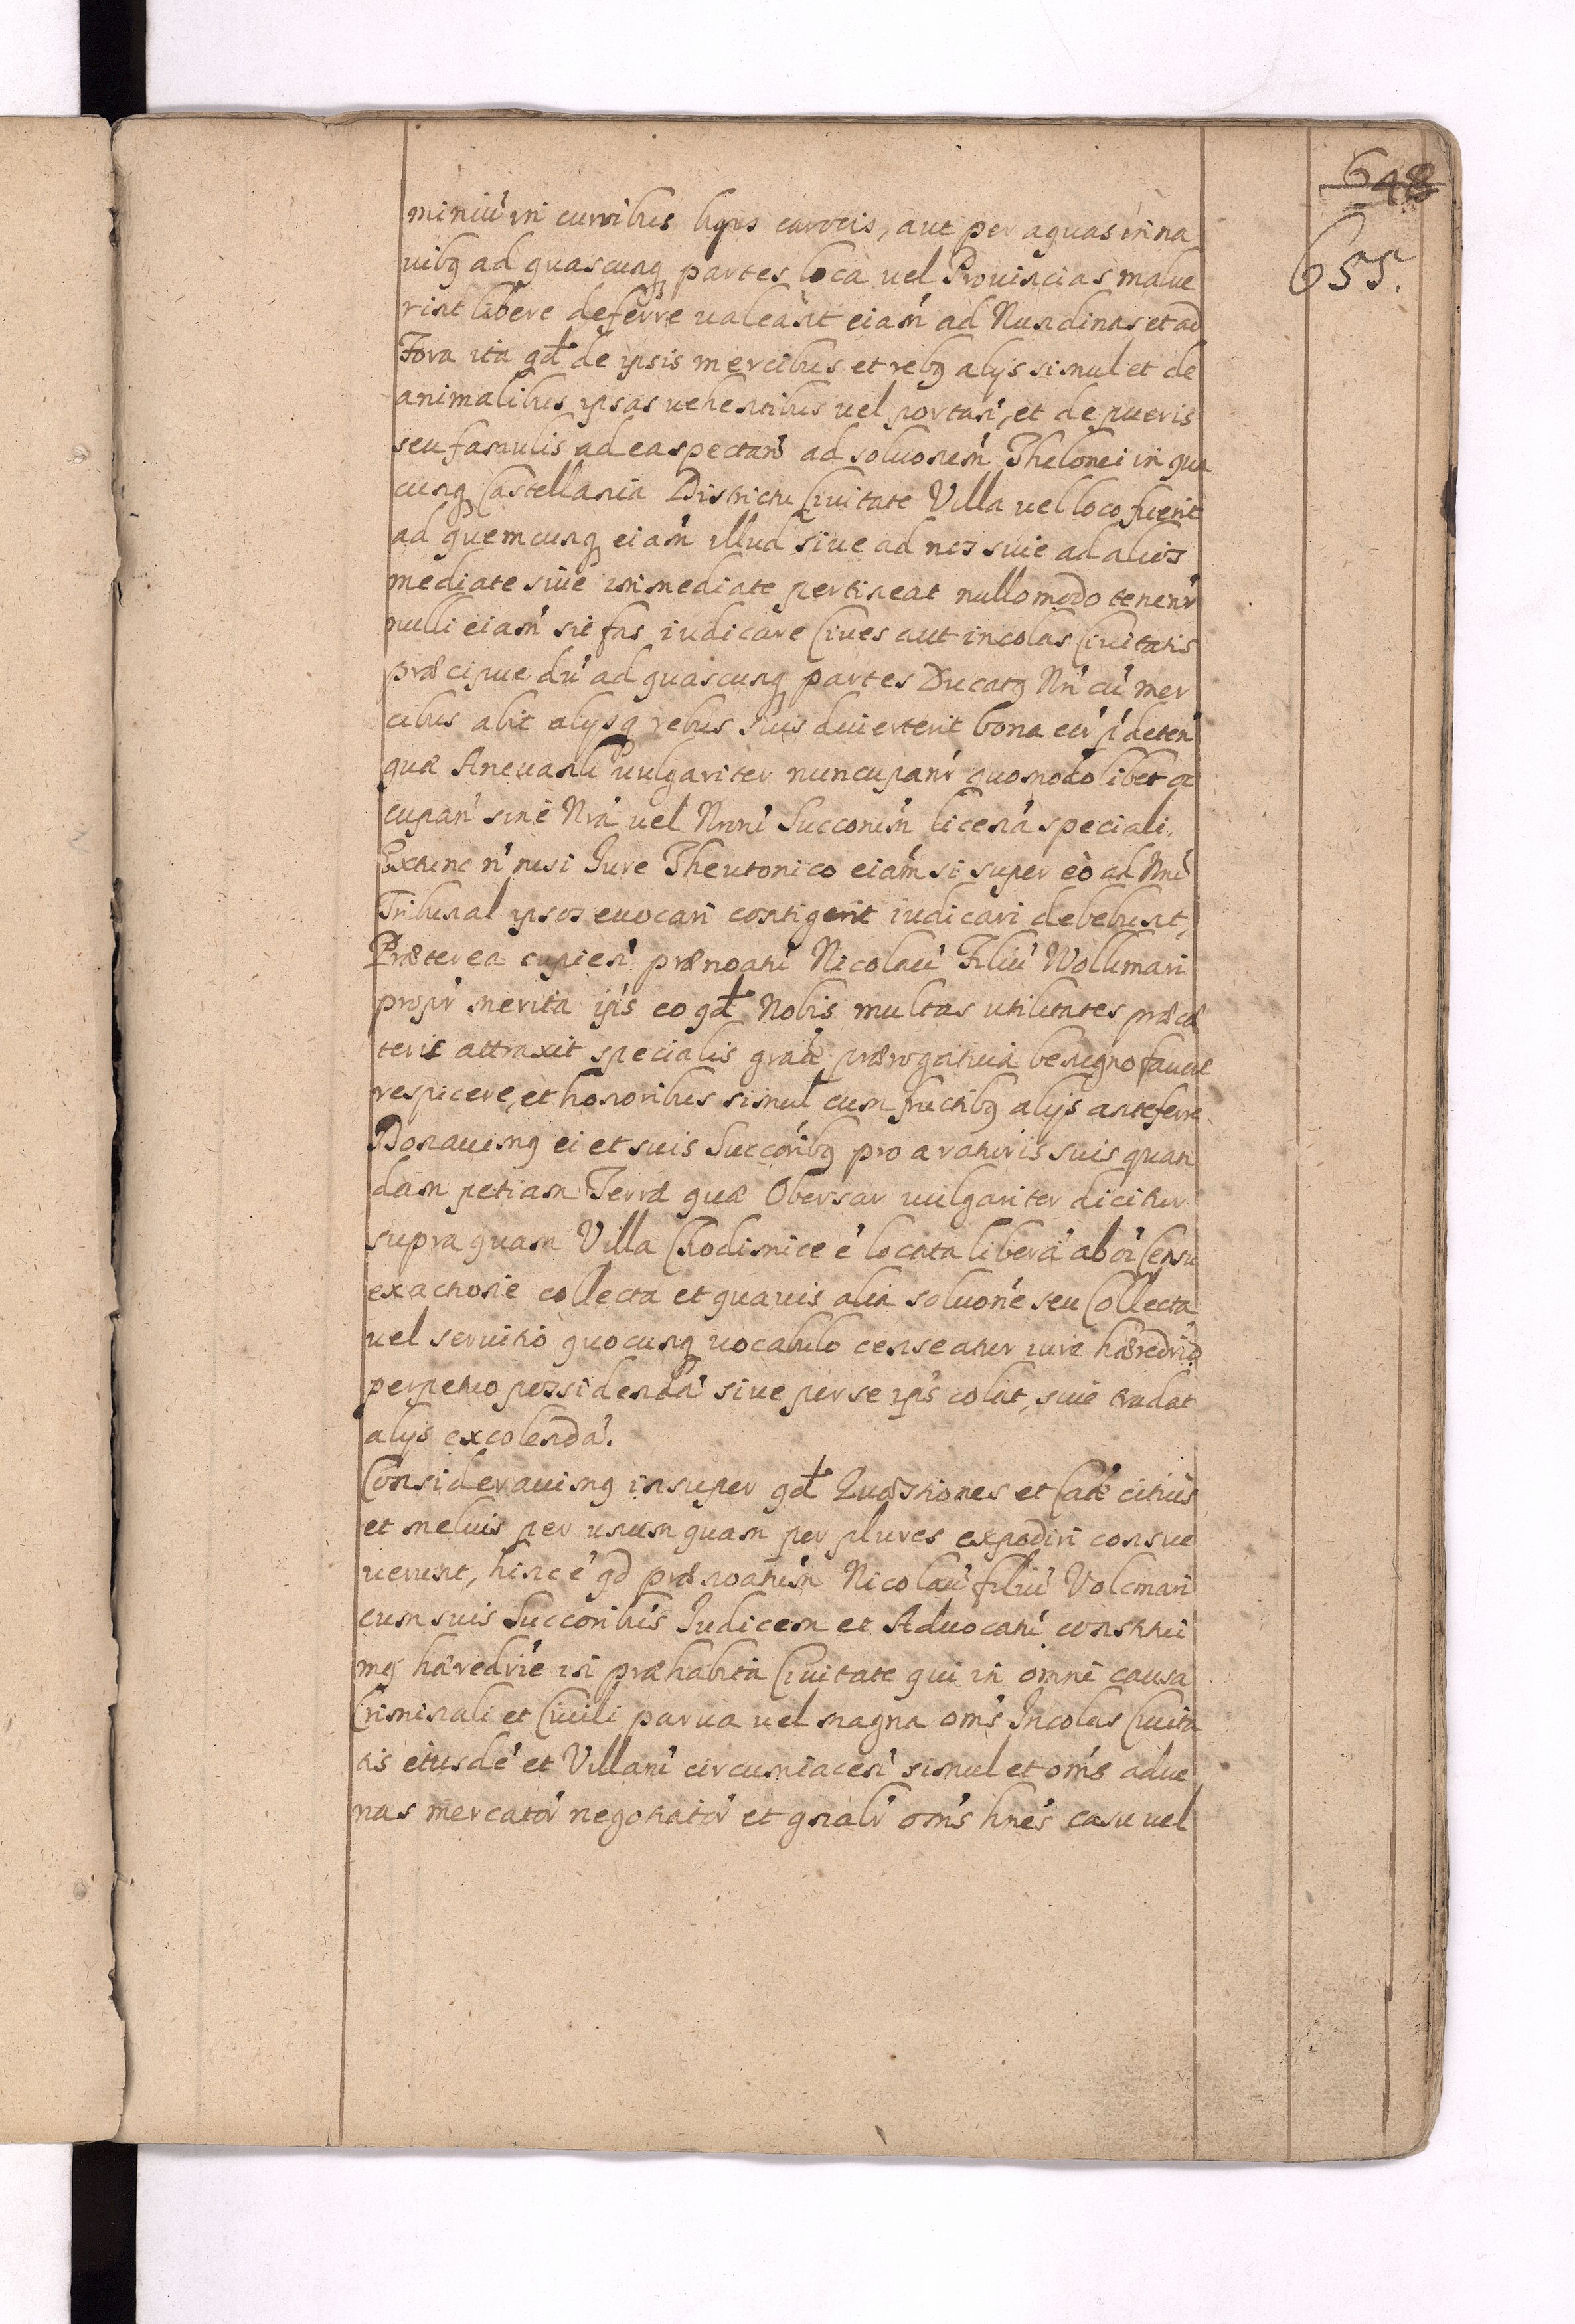 648
655.
miniu' in curribus bigis carrocis, aut per aquas in na
uibꝫ ad quascunqꝫ partes loca vel Prouincias malue
rint libere deferre ualeant eiam' ad Nundinas et ad
Fora ita qd de ipsis mercibus et rebꝫ alijs simul et de
animalibus ipsas uehentibus vel portan', et de pueris
seu famulis ad ea spectan' ad soluonem' Thelonei in qua
cunqꝫ Castellania Districtu Ciuitate Villa vel loco fuerit
ad quemcunqꝫ eiam' illud siue ad nos siue ad alios
mediate siue immediate pertineat nullo modo tenenr'
nulli eiam' sit fas iudicare Ciues aut incolas Ciuitatis
præcipue du' ad quascunqꝫ partes Ducatꝫ Nri' cu' mer
cibus abit alijsqꝫ rebus suis diuerterit bona eor' p' deten'
quæ Aneuasti' vulgariter nuncupanr' quomodolibet oc
cupan' sine Nra' vel Nroru' Succorum' licen'a speciali.
Extunc n' nisi Jure Theutonico eiam' si super eo ad Nru'
Tribunal ipsos euocari contigerit iudicari debebunt,
Præterea cupien' prænoatu' Nicolau' Filiu' Wollmari
propr' merita ipi's eo qd Nobis multas utilitates præ cæ
teris attraxit specialis gra'æ prærogatiua benigno fauore
respicere, et honoribus simul cum fructibꝫ alijs anteferre
Donauimꝫ ei et suis Succoribꝫ pro araturis suis quan
dam petiam Terræ quæ Obersar vulgariter dicitur
supra quam Villa Chodimice e' locata libera' ab oi' Censu
exactione collecta et quauis alia soluone' seu Collecta
vel seruitio quocunqꝫ uocabulo censeatur iure hæredrio
perpetuo possidenda' siue per se ips' colat, siue tradat
alijs excolenda'.
Considerauimꝫ insuper qd Quæstiones et Ca'æ citius
et melius per unum quam per plures expediri consue
uerunt, hinc e' qd prænoatum' Nicolau' filiu' Volcmari
cum suis Succoribus Judicem et Aduocatu' constitui
mꝫ hæredrie' in præhabita Ciuitate qui in omni causa
Criminali et Ciuili parua vel magna om's Incolas Ciuita
tis eiusde' et Villaru' circumiacen' simul et om's adue
nas mercator' negotiator' et gnalr' om's hnes' casu vel